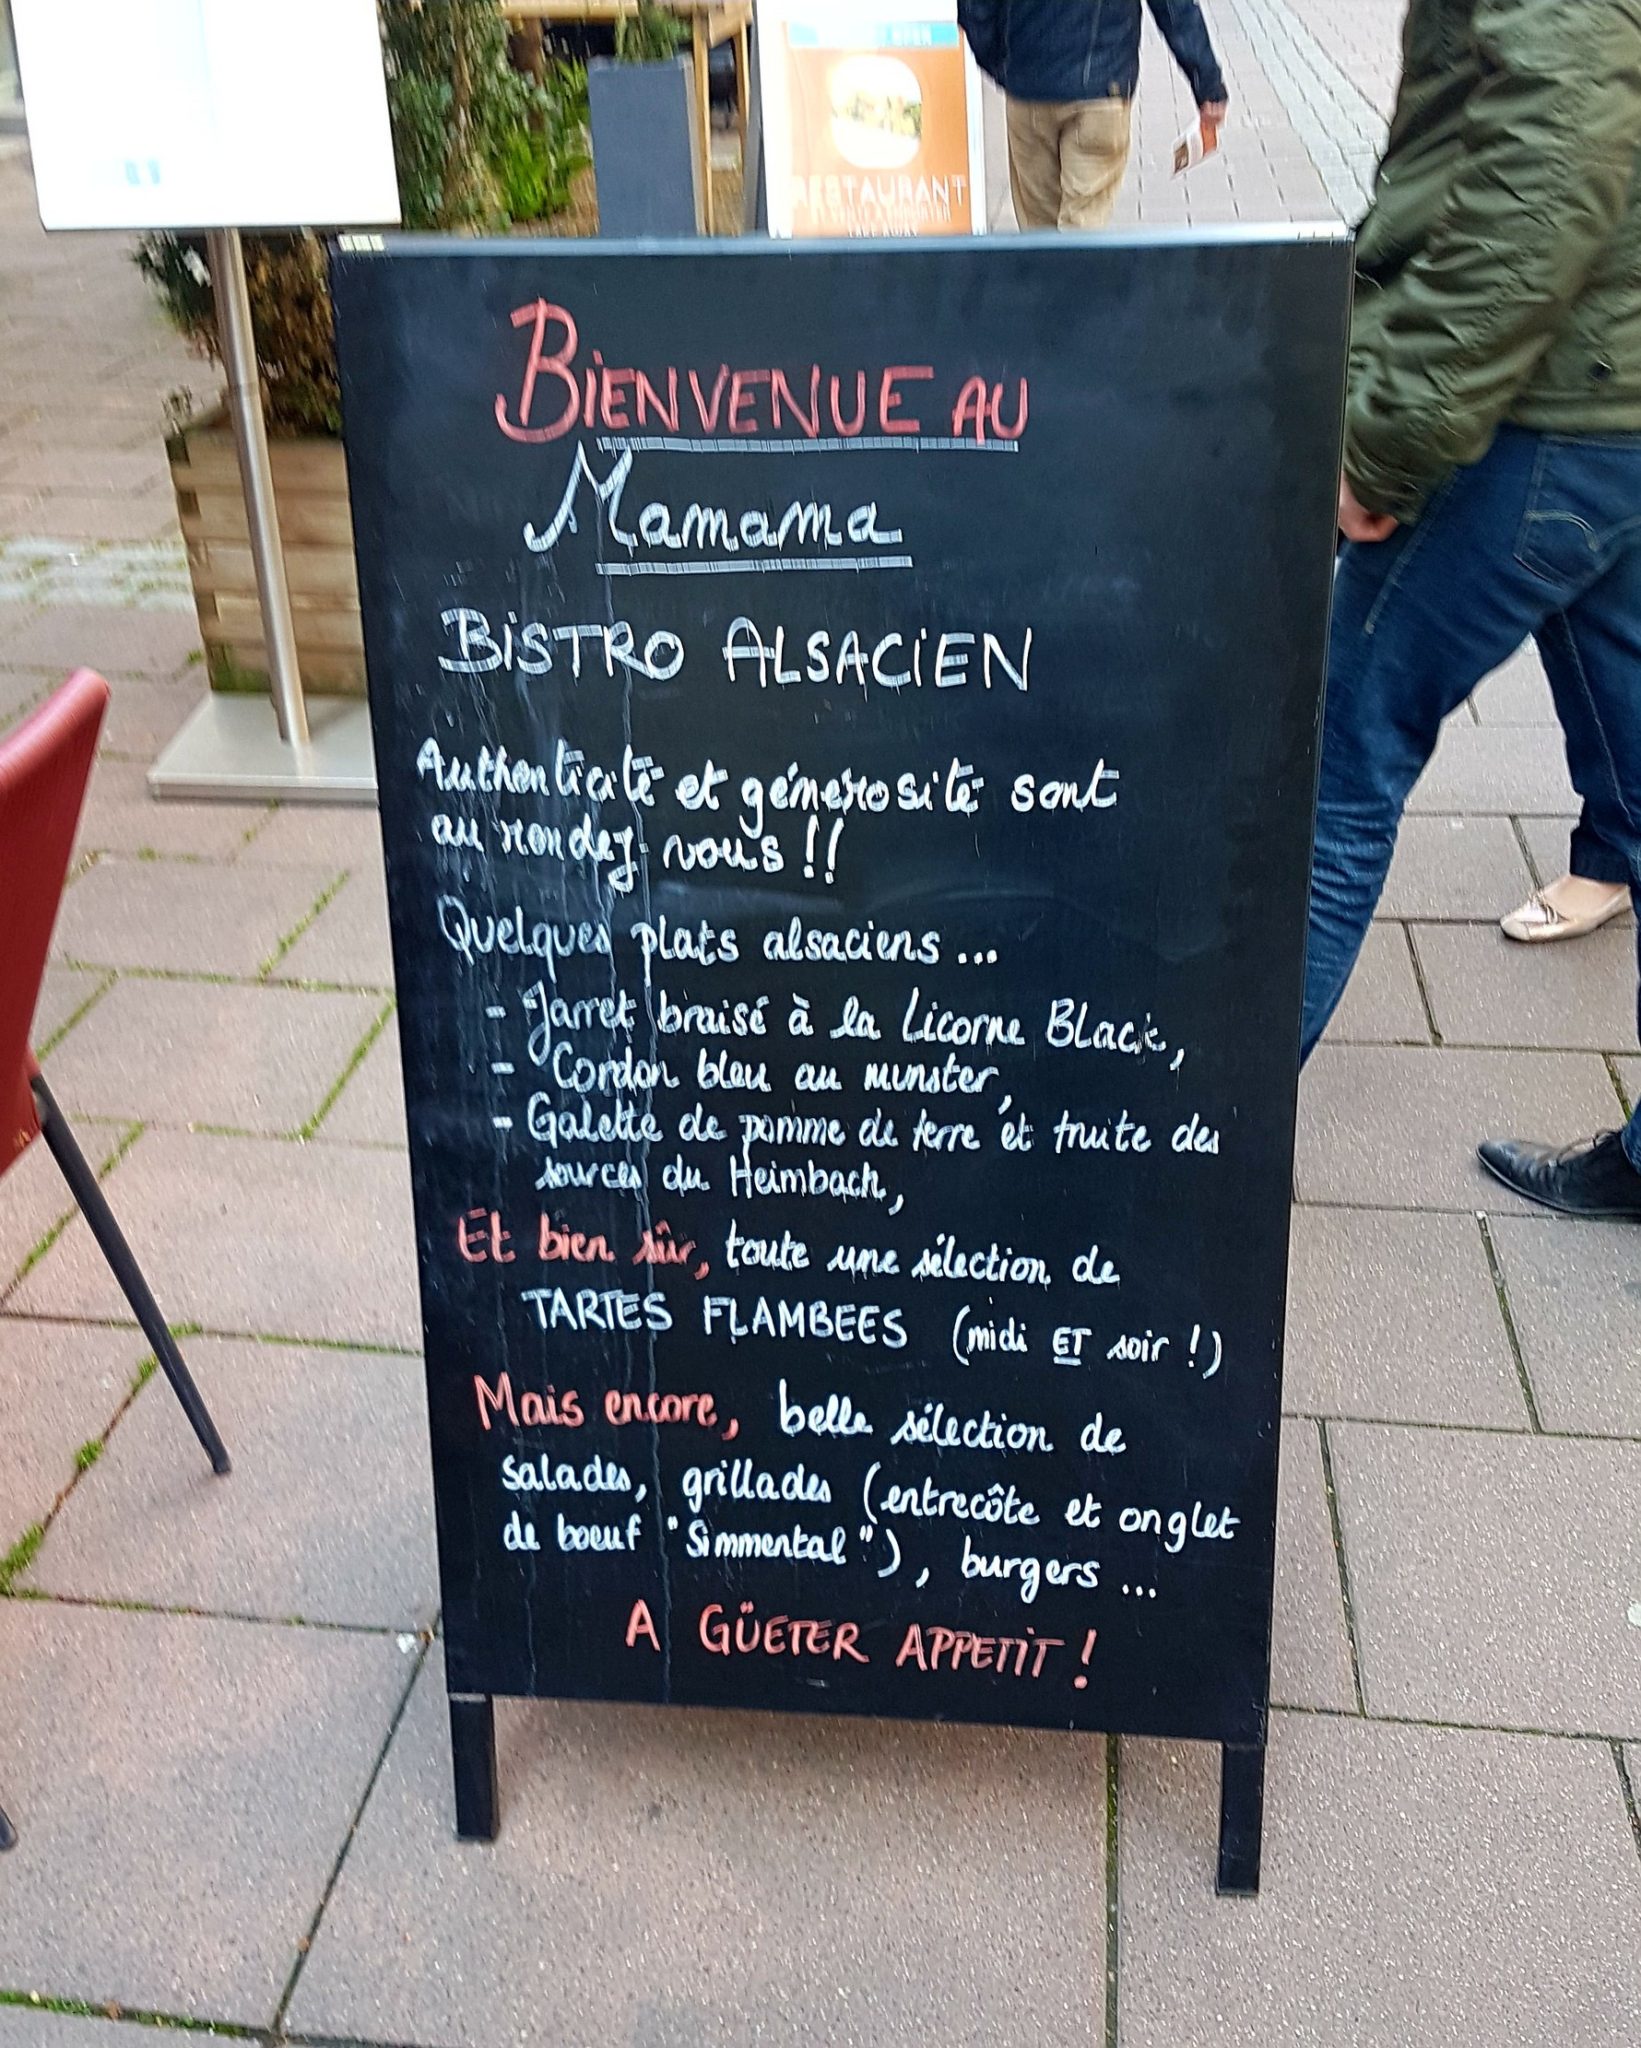 RESTAURANT
BIENVENUE AU
Mamama
BISTRO ALSACIEN
Authenticité et générosité sont
au rendez vous !!
Quelques plats alsaciens ...
- Jarret braisé à la Licorne Black,
- Cordon bleu au munster,
- Galette de pomme de terre et truite des
sources du Heimbach,
Et bien sûr, toute une sélection de
TARTES FLAMBEES (midi ET soir !)
Mais encore, belle sélection de
salades, grillades (entrecôte et onglet
de boeuf "Simmental"), burgers ...
A GÜETER APPETIT !